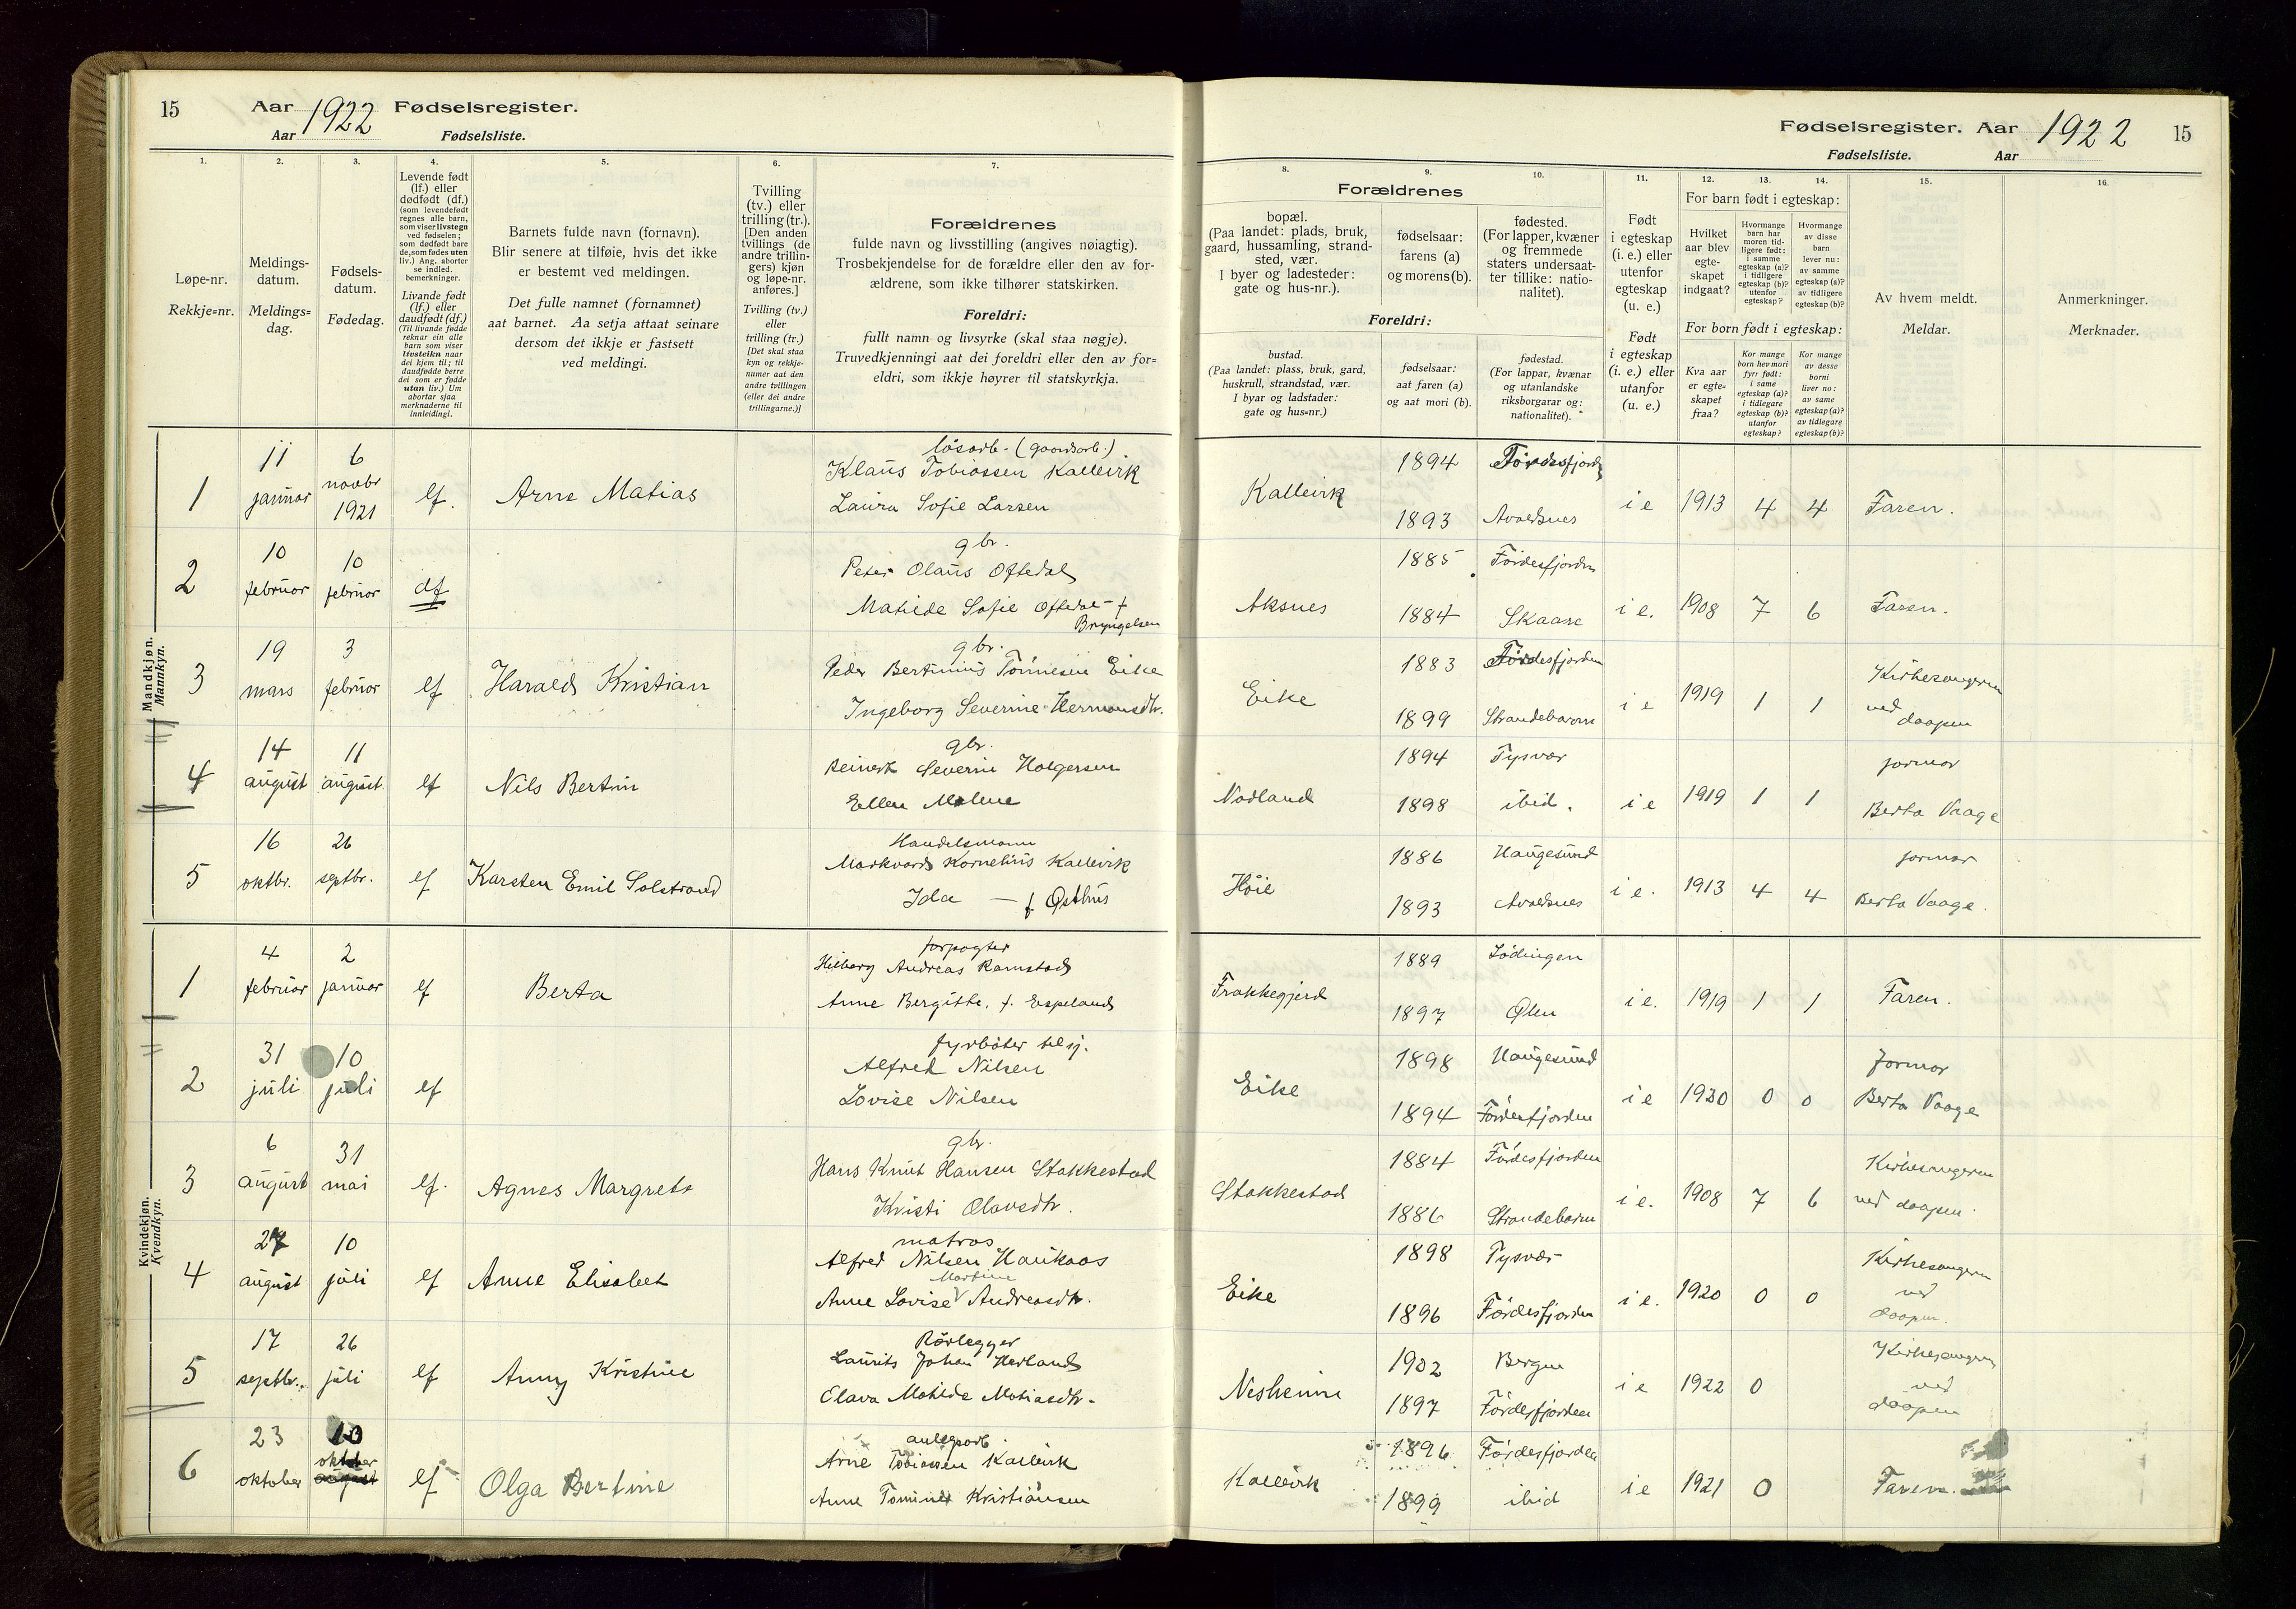 15 Aar 1922 Fødselsregister.
Aar Fødselsliste.
Fødselsregister. Aar 1922 15
Fødselsliste. Aar
1. 2. 3. 4. 5. 6. 7.
Løpe-nr.
Rekkje=nr.
Meldings-
datum.
Meldings=
dag.
Fødsels-
datum.
Fødedag.
Levende født
(lf.) eller
dødfødt (df.)
(som levendefødt
regnes alle barn,
som viser livstegn
ved fødselen;
som dødfødt bare
de, som fødes uten
liv.) Ang. aborter
se indled.
bemerkninger.
Livande født
(lf.) eller
daudfødt (df.)
(Til livande fødde
reknar ein alle
barn som viser
livsteikn naar
dei kjem til; til
daudfødde berre
dei som er fødde
utan liv.) Um
abortar sjaa
merknaderne til
innleiding i.
Barnets fulde navn (fornavn).
Blir senere at tilføie, hvis det ikke
er bestemt ved meldingen.
Det fulle namnet (fornamnet)
aat barnet. Aa setja attaat seinare
dersom det ikkje er fastsett
ved meldingi.
Tvilling
(tv.) eller
trilling (tr.).
[Den anden
tvillings (de
andre trillin-
gers) kjøn
og løpe-nr.
anføres.]
Tvilling (tv.)
eller
trilling (tr.)
[Det skal staa
kyn og rekkje-
numer aat den
andre tvillingen
(eller dei andre
trillingarne.)]
Forældrenes
fulde navn og livsstilling (angives nøiagtig).
Trosbekjendelse for de forældre eller den av for-
ældrene, som ikke tilhører statskirken.
Foreldri:
fullt namn og livsyrke (skal staa nøgje).
Truvedkjenningi aat dei foreldri eller den av for=
eldri, som ikkje høyrer til statskyrkja.
8. 9. 10. 11. 12. 13. 14. 15. 16.
Forældrenes
bopæl.
(Paa landet: plads, bruk,
gaard, hussamling, strand-
sted, vær.
I byer og ladesteder:
gate og hus-nr.).
fødselsaar:
farens (a)
og morens (b).
fødested.
(For lapper, kvæner
og fremmede
staters undersaat-
ter tillike: natio-
nalitet).
Foreldri:
bustad.
(Paa landet: plass, bruk, gard,
huskrull, strandstad, vær.
I byar og ladstader:
gate og hus=nr.)
fødselsaar:
aat faren (a)
og aat mori (b).
fødestad.
(For lappar, kvænar
og utanlandske
riksborgarar og:
nationalitet).
Født
i egteskap
(i. e.) eller
utenfor
egteskap
(u. e.)
Født
i egteskap
(i. e.) eller
utanfor
(u. e.)
For barn født i egteskap:
Hvilket
aar blev
egte-
skapet
indgaat?
Hvormange
barn har
moren tid-
ligere født:
i samme
egteskap (a)?
i tidligere
egteskap (b)?
utenfor
egteskap?
Hvormange
av disse
barn
lever nu:
av samme
egteskap (a)?
av tidligere
egteskap (b)?
For born født i egteskap:
Kva aar
er egte-
skapet
fraa?
Kor mange
born hev mori
fyrr født:
i same
egteskap (a)?
i tidlegare
egteskap (b)?
utanfor
egteskap?
Kor mange
av desse
borni
liver no:
av same
egteskap (a)?
av tidlegare
egteskap (b)?
Av hvem meldt.
Meldar.
Anmerkninger.
Merknader.
Mandkjøn.
Mannkyn.
1 11 januar 6 novbr 1921 lf. Arne Matias
løsarb. (gaardsarb.)
Klaus Tobiassen Kallevik
Laura Sofie Larsen
Kallevik 1894 Førdesfjorden i e 1913 4 4 Faren.
1893 Avaldsnes
2 10 februar 10 februar df
gbr.
Peter Olaus Oftedal
Matilde Sofie Oftedal f
Bryngelsen
Aksnes 1885 Førdesfjorden i e. 1908 7 6 Faren.
1884 Skaare
3 19 mars 3 februar lf Harald Kristian
gbr.
Peder Bertinius Tønnesen Eike
Ingeborg Severine Hermansdtr.
Eike 1883 Førdesfjorden i e 1919 1 1 Kirkesangeren
1899 Strandebarm ved
daapen
4 14 august 11 august lf Nils Bertin
gbr.
Reinert Severin Holgersen
Ellen Malene
Nodland 1894 Tysvær i e 1919 1 1 jormor
1898 ibid. Berta Vaage
5 16 oktbr. 26 septbr. lf Karsten Emil Solstrand
Handelsmann
Markvard Kornelius Kallevik
Ida — f Østhus
Høie 1886 Haugesund i e. 1913 4 4 jormor
1893 Avaldsnes Berta Vaage.
Kvindekjøn.
Kvendkyn.
1 4 februar 2 januar lf Berta
forpagter
Andreas Ramstad
Anne Bergitte. f. Espeland
Frakkegjerd 1889 Lødingen i e. 1919 1 1 Faren.
1897 Ølen
2 31 juli 10 juli lf
fyrbøter
Alfred Nilsen
Lovise Nilsen
Eike 1898 Haugesund i e 1920 0 0 Jormor
1894 Førdesfjorden Berta Vaage
3 6 august 31 mai lf. Agnes Margrete
gbr.
Hans Knut Hansen Stakkestad
Kristi Olavsdtr.
Stakkestad 1884 Førdesfjorden i e. 1908 7 6 Kirkesangeren
1886 Strandebarm ved daapen
4 27 august 10 juli lf Anne Elisabet
matros
Alfred Nilsen Haukaas
Martine
Anne Lovise Andreasdtr.
Eike 1898 Tysvær i e. 1920 0 0 Kirkesangeren
1896 Førdesfjorden ved
daapen.
5 17 septbr. 26 juli lf Anny Kristine
Rørlegger
Laurits Johan Herland
Olava Matilde Matiasdtr.
Nesheim 1902 Bergen i e 1922 0 Kirkesangeren
1897 Førdesfjorden ved
daapen
6 23 oktober 10 oktober august lf Olga Bertine
Arne Tobiassen Kallevik
Anne Tomine Kristiansen
Kallevik 1896 Førdesfjorden i e 1921 0 Faren.
1899 ibid